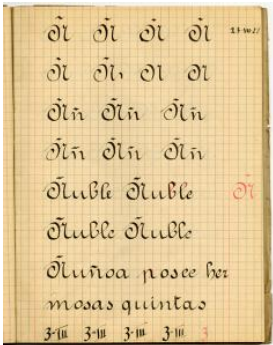 Ñ Ñ Ñ Ñ
Ñ Ñ, Ñ Ñ
Ññ Ññ Ññ
Ññ Ññ Ññ
Ñuble Ñuble Ñ
Ñuble Ñuble
Ñuñoa posee her
mosas quintas
3-III 3-III 3-III 3-III 3